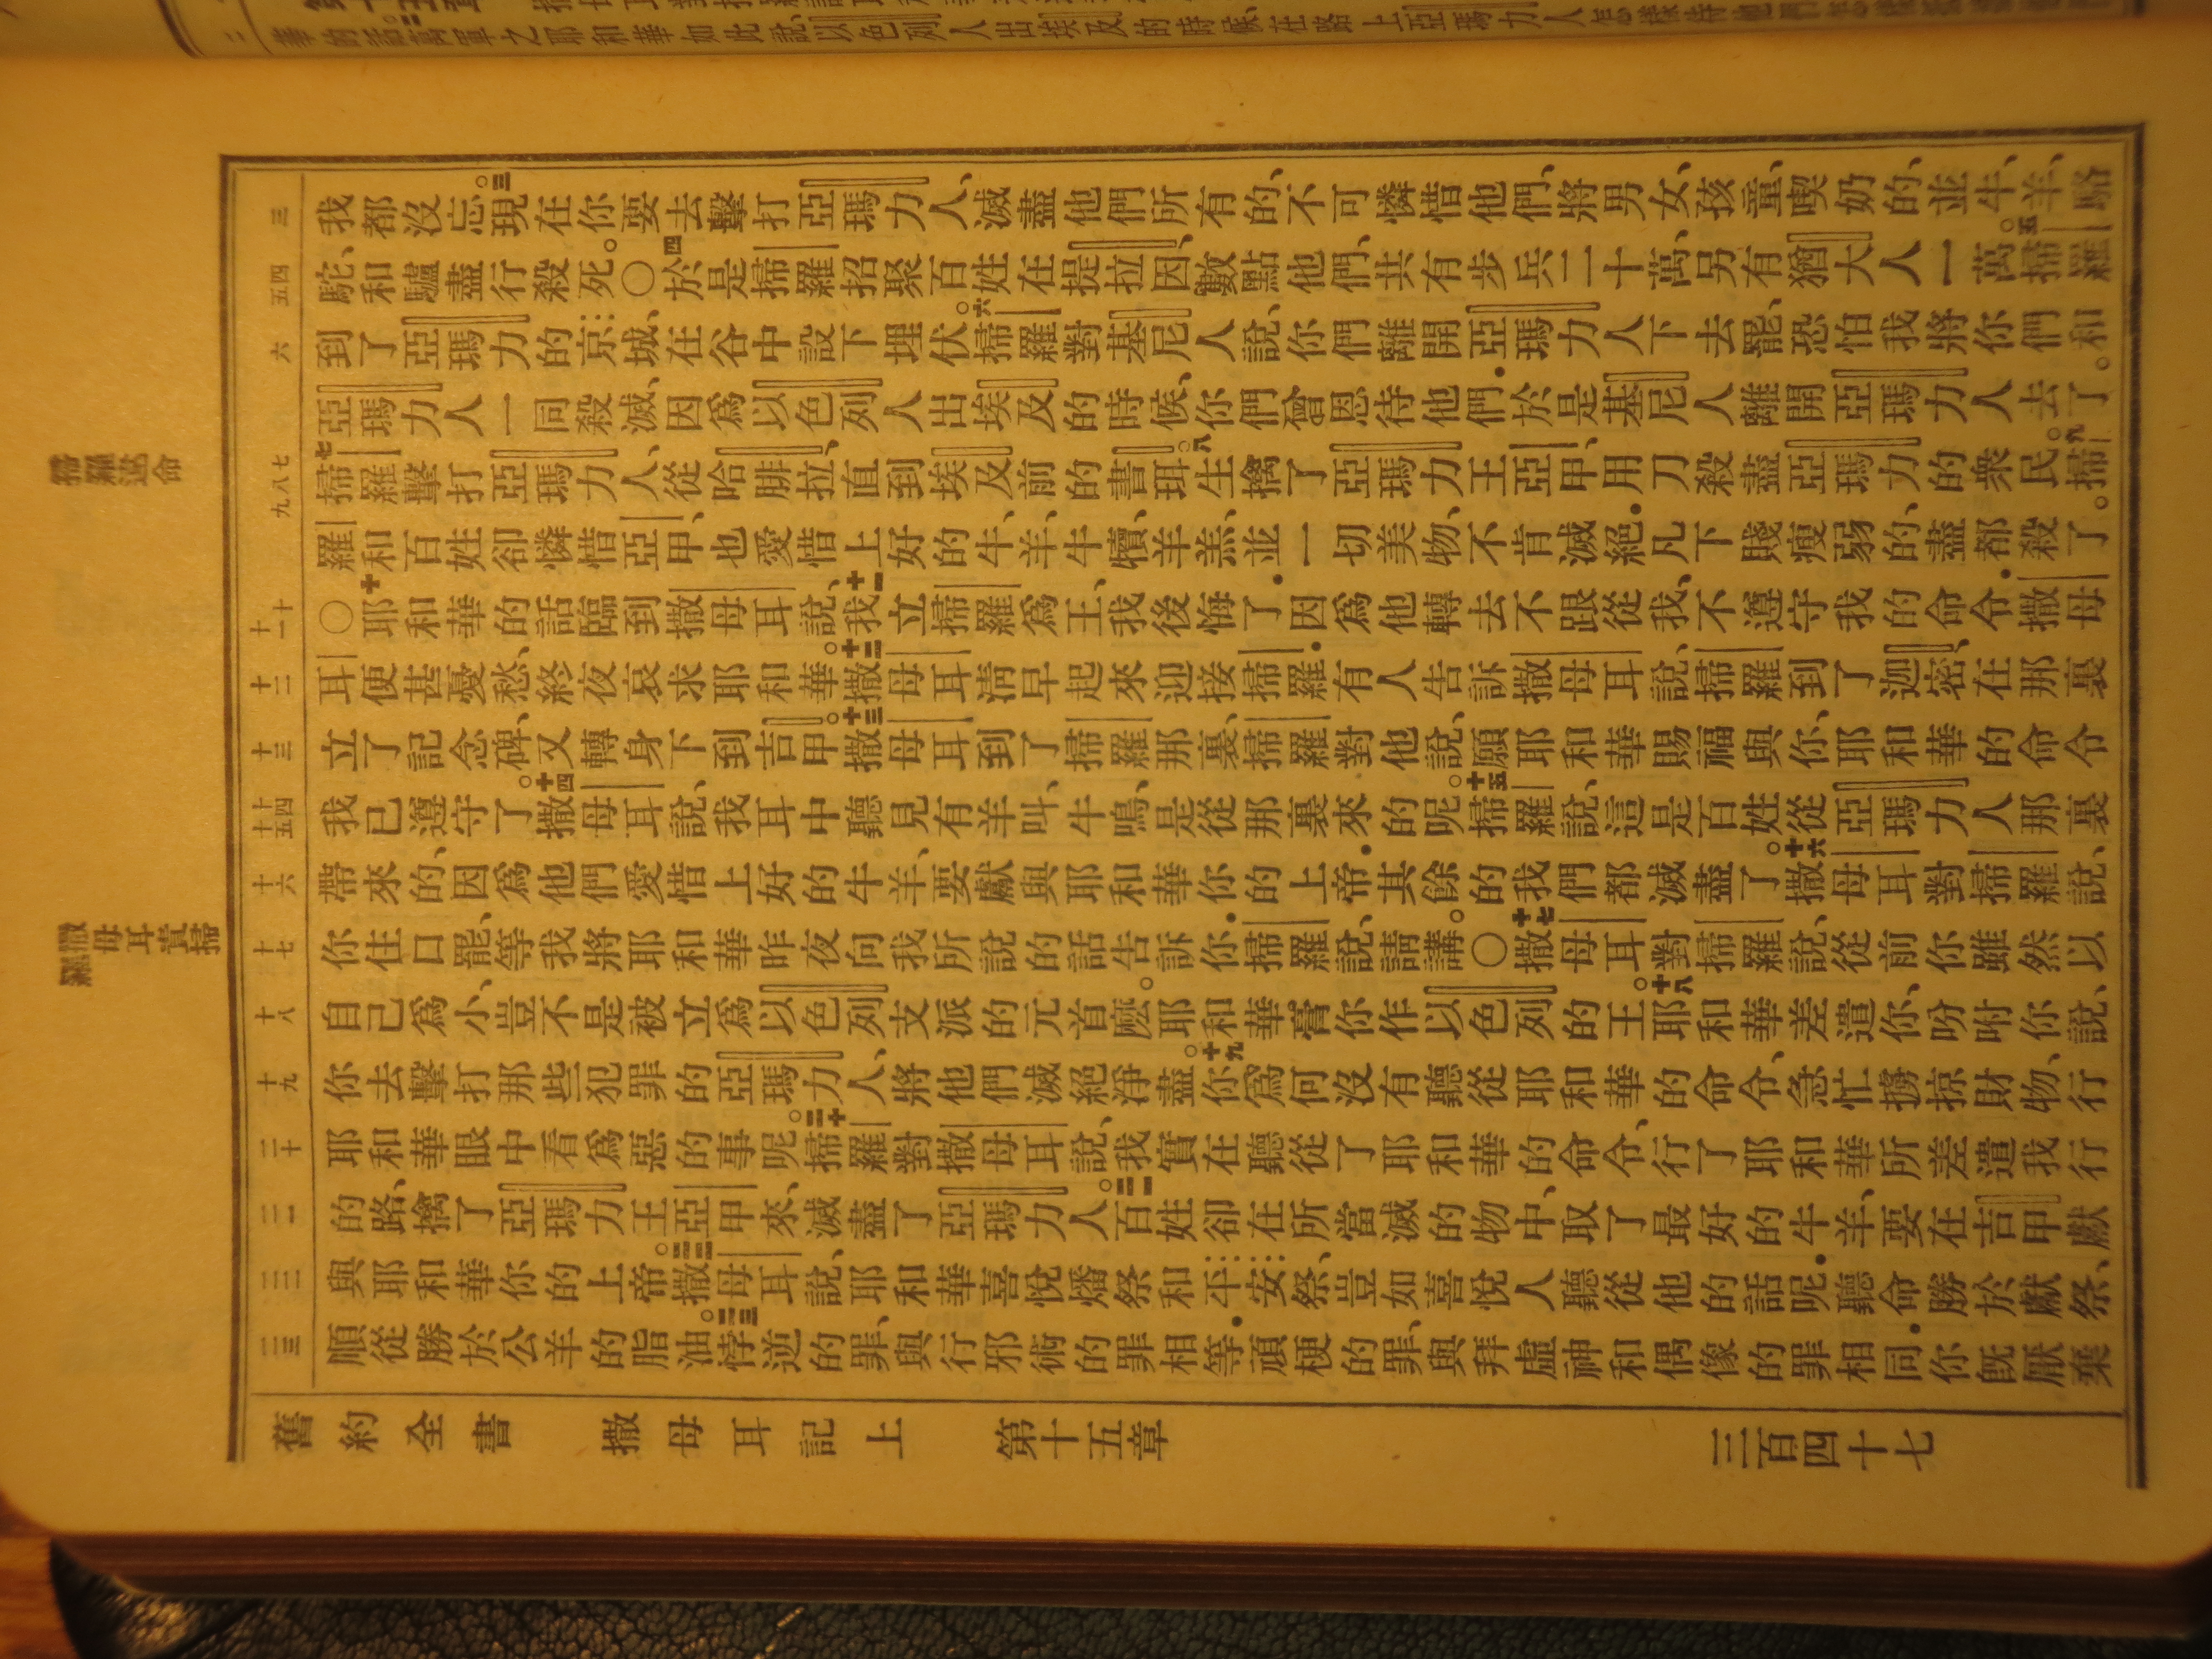 華的話萬軍之耶和華如此說以色列人出埃及的時候在路上亞瑪力人怎樣待他們
掃羅逆命
撒母耳責掃羅
三
我都沒忘。三現在你要去擊打亞瑪力人、滅盡他們所有的、不可憐惜他們、將男女、孩童、喫奶的、並牛、羊、駱
四 五
駝、和驢盡行殺死。○四於是掃羅招聚百姓在提拉因、數點他們、共有步兵二十萬、另有猶大人一萬。五掃羅
六
到了亞瑪力的京城、在谷中設下埋伏。六掃羅對基尼人說、你們離開亞瑪力人下去罷、恐怕我將你們和
亞瑪力人一同殺滅、因為以色列人出埃及的時候、你們曾恩待他們．於是基尼人離開亞瑪力人去了。
七 八 九
七掃羅擊打亞瑪力人、從哈腓拉、直到埃及前的書珥。八生擒了亞瑪力王亞甲、用刀殺盡亞瑪力的衆民。九掃
羅和百姓卻憐惜亞甲、也愛惜上好的牛、羊、牛犢、羊羔、並一切美物、不肯滅絕．凡下賤瘦弱的、盡都殺了。
十 十一
○十耶和華的話臨到撒母耳說、十一我立掃羅爲王、我後悔了．因爲他轉去不跟從我、不遵守我的命令．撒母
十二
耳便甚憂愁、終夜哀求耶和華。十二撒母耳清早起來迎接掃羅．有人告訴撒母耳說、掃羅到了迦密、在那裏
十三
立了記念碑、又轉身下到吉甲。十三撒母耳到了掃羅那裏、掃羅對他說、願耶和華賜福與你、耶和華的命令
十四 十五
我已遵守了。十四撒母耳說、我耳中聽見有羊叫、牛鳴、是從那裏來的呢。十五掃羅說、這是百姓從亞瑪力人那裏
十六
帶來的、因爲他們愛惜上好的牛羊、要獻與耶和華你的上帝．其餘的我們都滅盡了。十六撒母耳對掃羅說、
十七
你住口罷、等我將耶和華昨夜向我所說的話告訴你．掃羅說、請講。○十七撒母耳對掃羅說、從前你雖然以
十八
自己爲小、豈不是被立爲以色列支派的元首麽。耶和華膏你作以色列的王。十八耶和華差遣你、吩咐你說、
十九
你去擊打那些犯罪的亞瑪力人、將他們滅絕淨盡。十九你爲何沒有聽從耶和華的命令、急忙擄掠財物、行
二十
耶和華眼中看爲惡的事呢。二十掃羅對撒母耳說、我實在聽從了耶和華的命令、行了耶和華所差遣我行
二一
的路、擒了亞瑪力王亞甲來、滅盡了亞瑪力人。二一百姓卻在所當滅的物中、取了最好的牛羊、要在吉甲獻
二二
與耶和華你的上帝。二二撒母耳說、耶和華喜悅燔祭和平安祭、豈如喜悅人聽從他的話呢．聽命勝於獻祭、
二三
順從勝於公羊的脂油。二三悖逆的罪、與行邪術的罪相等．頑梗的罪、與拜虛神和偶像的罪相同．你既厭棄
舊約全書　撒母耳記上　第十五章　三百四十七